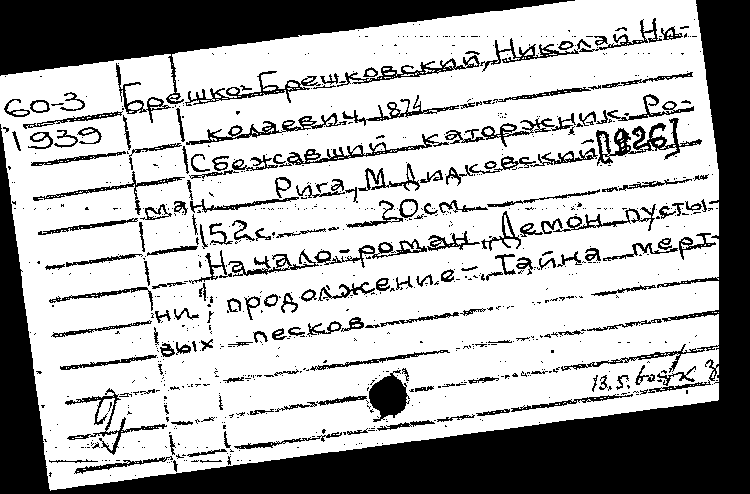 60-3 Брешко-Брешковский, Николай Ни-
1939 колаевич, 1874
Сбежавший каторжник. Ро-
ман. Рига, М. Дидковский [1926]
152с. 20см.
Начало-роман „Демон пусты-
ни", продолжение-„Тайна мерт-
вых песков
13.5.60